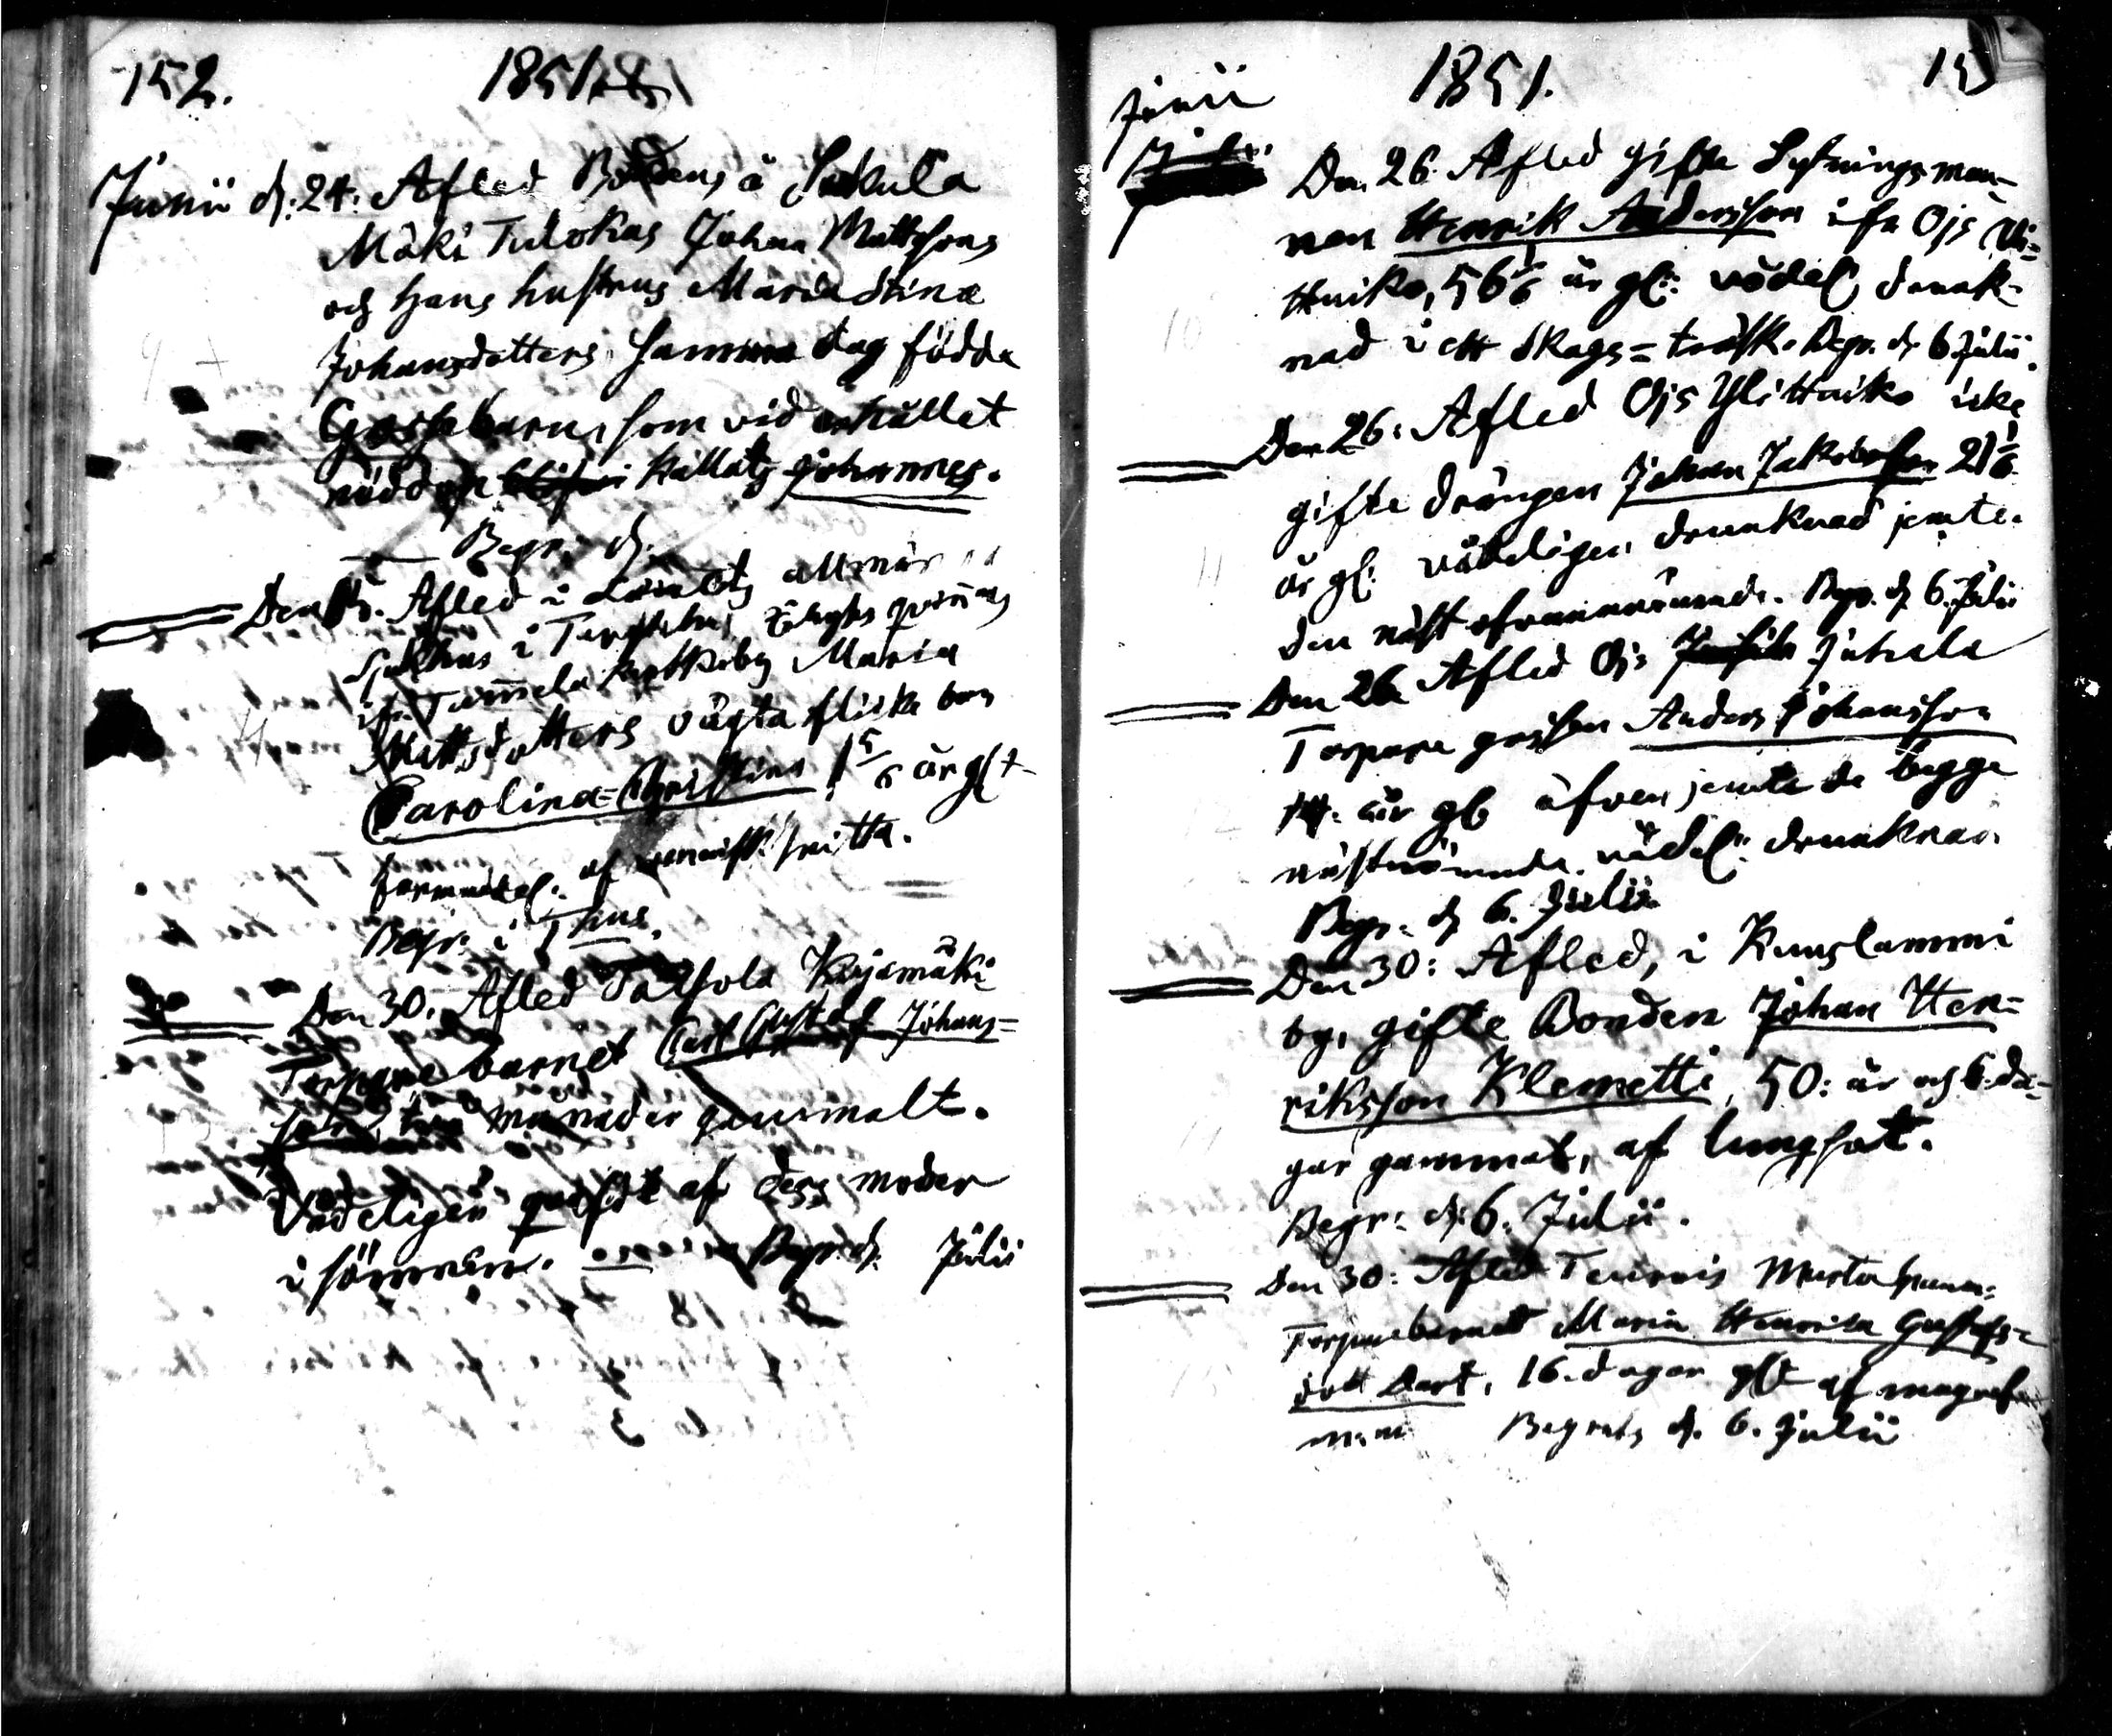 152. 1851.
Junii d: 24: Afled Bondens å Sukula
Mäki Tulokas Johan Mattssons
och hans hustrus Maria Stina
Johansdotters, samma dag födda
Gossebarn, som vid erhållet
nöddop kallats Johannes.
Begr. d.
Den Afled i Länets allmän
Sjukhus i qvinnans
ifr. Tammela by Maria
Mattsdotters oägta flicke barn
Carolina=Christina 1 5/6 år glt
förmodel. af venerisk smitta.
Begr. i Thus.
Den 30. Afled Talsola Kujamäki
Torpare barnet Carl Gustaf Johans=
son, två månader gammalt.
Vådeligen qväfdt af dess moder
i sömnen. Begr. d. Julii
1851. 153
Junii
Den 26. Afled gifte Sytningsman=
nen Henrik Andersson ifr Ojs Yli=
Hniko, 56 1/6 år gl: vådel drunk=
nad i ett Skogs=träsk. Begr. d. 6 Julii.
Den 26: Afled Ojs Ylittniko icke
gifte drängen Johan Jakobsson 21 1/6
år gl: vådeligen drunknad jemte
den näst ofvannämnde. Begr. d. 6. Julii
Den 26 Afled Ojs Juhala
Torpare gossen Anders Johansson
14. år gl äfven jemte de begge
nästnämnde vådel: drunknad.
Begr. d 6. Julii
Den 30: Afled, i Kuuslammi
by, gifte Bonden Johan Hen=
riksson Klemetti, 50: år och 6. da=
gar gammal, af lungsot.
Begr: d: 6. Julii.
Den 30: Afled Teurois
Torparebarnet Maria Henrika Gustafs=
dott 16. dagar glt af magref
Begrofs d. 6. Julii